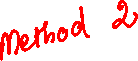 Method 2